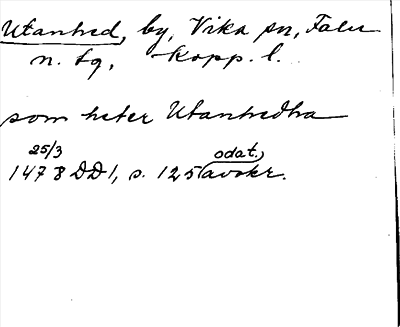 Utanhed, by, Vika sn, Falu
n. tg, Kopp. l.
som heter Utanhedha
25/3 odat.,
1478 DD1, s. 125 avskr.